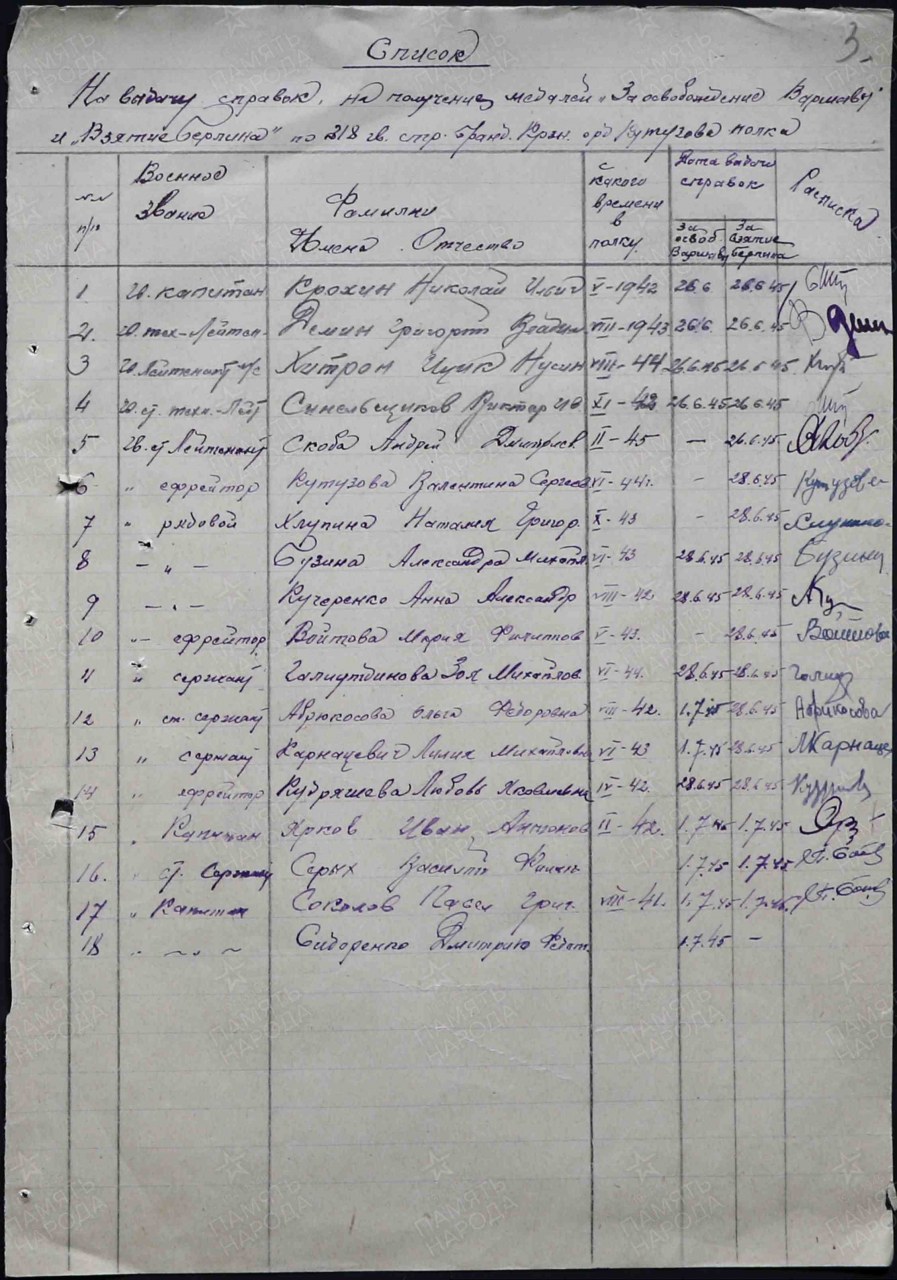 3.
Список
На выдачу справок, на получение медалей "За освобождение Варшавы"
и "Взятие Берлина" по 218 гв. стр. Кутузова полка
п/п
Военное Звание
Фамилия Имена Отчество
с какого времени в полку
Дата выдачи справок
За освоб. Варшавы
За взятие Берлина
Расписка
1 Гв. капитан Крохин Николай Ильич V-1942 26.6 26.6.45
2. Гв. тех-Лейтен. Демин Григорий VIII-1943 26/6. 26.6.45
3 Гв. Лейтенант Хитрон Ицик Нусин VIII-44 26.6.45 26.6.45
4 Гв. ст. техн. Лейт Синельщиков Виктор XI-42 26.6.45 26.6.45
5 Гв. ст Лейтенант Скоба Андрей Дмитриев II-45 - 26.6.45
6 " ефрейтор Кутузова Валентина Сергеев VI-44г. - 28.6.45 Кутузова
7 " рядовой Хлупина Наталия Григор. X-43 - 28.6.45
8 - " - Бузина Александра Михайл. VI-43 28.6.45 28.6.45 Бузина
9 - " - Кучеренко Анна Александр VIII-42. 28.6.45 28.6.45
10 " ефрейтор Войтова Мария Филиппов V-43. - 28.6.45 Войтова
11 " сержант Галиутдинова Зоя Михайлов VI-44. 28.6.45 28.6.45
12 " ст. сержант Абрюкосова Ольга Федоровна VIII-42. 1.7.45 28.6.45 Абрикосова
13 " сержант Карнацевич Лилия Михайловн VI-43 1.7.45 28.6.45 ЛКарнацев
14 " ефрейтор Кудряшева Любовь Яковлевна IV-42. 28.6.45 28.6.45
15 " Капитан Ярков Иван Антонов II-42. 1.7.45 1.7.45
16. " ст. Сержант Серых Василий 1.7.45 1.7.45
17 " Капитан Соколов Павел Григ. VIII-41. 1.7.45 1.7.45
18 " - " - Сидоренко Дмитрию Федот. 1.7.45 -
ПАМЯТЬ НАРОДА